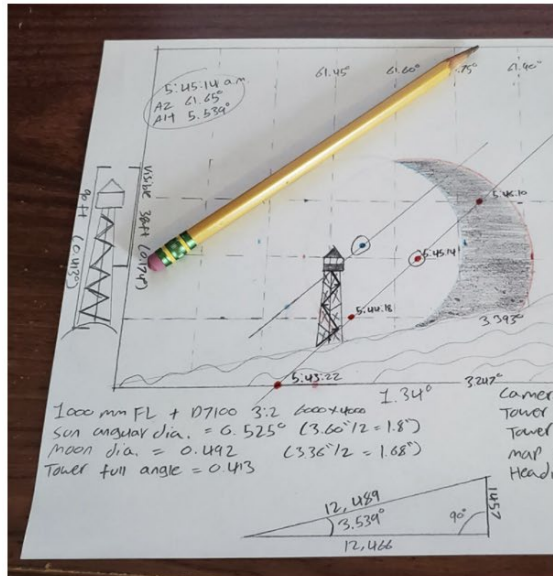 5:45:14 a.m.
AZ 61.65°
Alt 5.539°
61.45°
61.60°
.75°
61.90°
90ft (0.413°)
visible 38ft (0.174°)
5:46:10
5:45:14
5:44:18
3.393°
5:43:22
1.34°
3.247°
1000 mm FL + D7100 3:2 6000x4000
Sun angular dia. = 0.525° (3.60"/2 = 1.8")
Moon dia. = 0.492 (3.36"/2 = 1.68")
Tower full angle = 0.413
Camer
Tower
Tower
map
Headi
12,489
3.539°
90°
1457
12,466